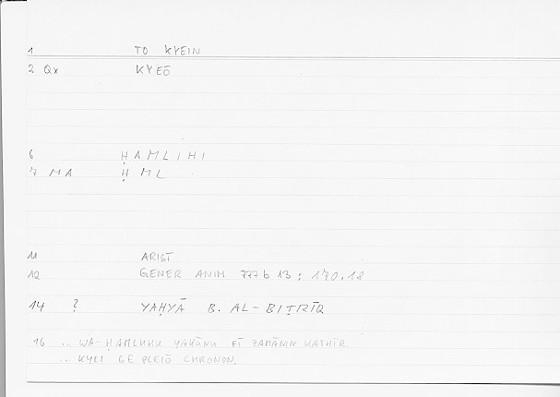 1 TO KYEIN
2 Qx KYEŌ
6 ḤAMLIHI
7 MA ḤML
11 ARIST
12 GENER ANIM 777 b 13 ; 170.18
14 ? YAḤYĀ B. AL-BIṬRĪQ
16 .. WA-ḤAMLUHU YAKŪNU FĪ ZAMĀNIN KATHĪR
.. KYEI GE PLEIŌ CHRONON.